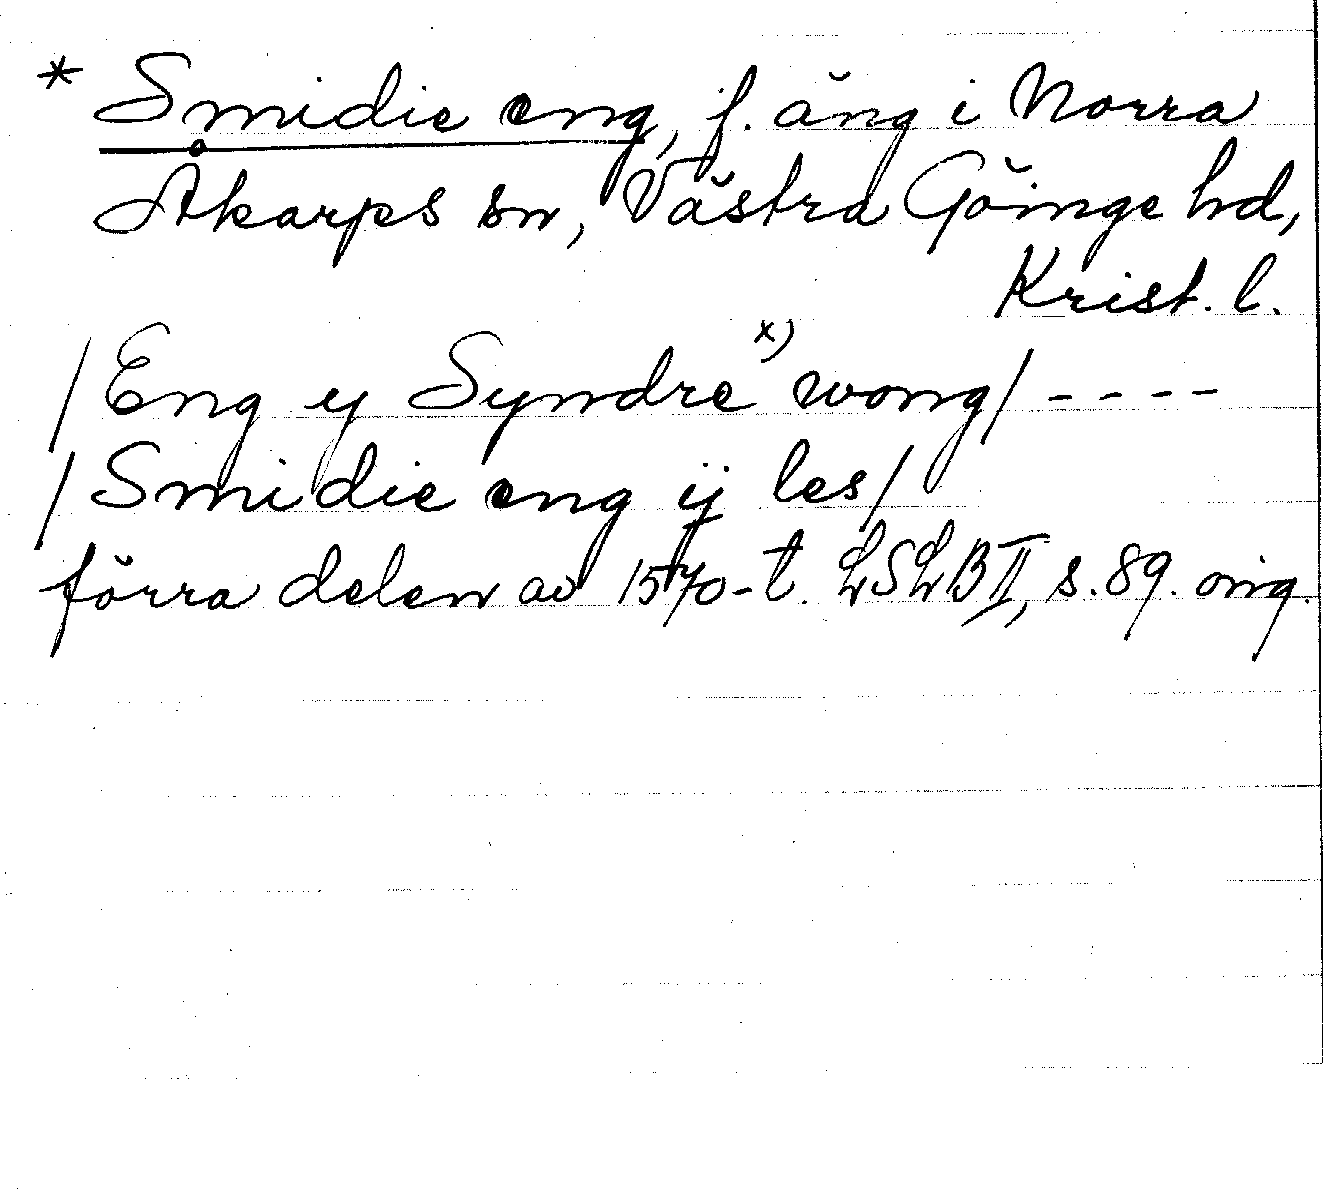 * Smidie eng, f. äng i Norra
Åkarps sn, Västra Göinge hd,
Krist. l.
/Eng y Syndre x) wong/ ----
/Smidie eng ij les/
förra delen av 1570-t. LSLB II, s. 89. orig.